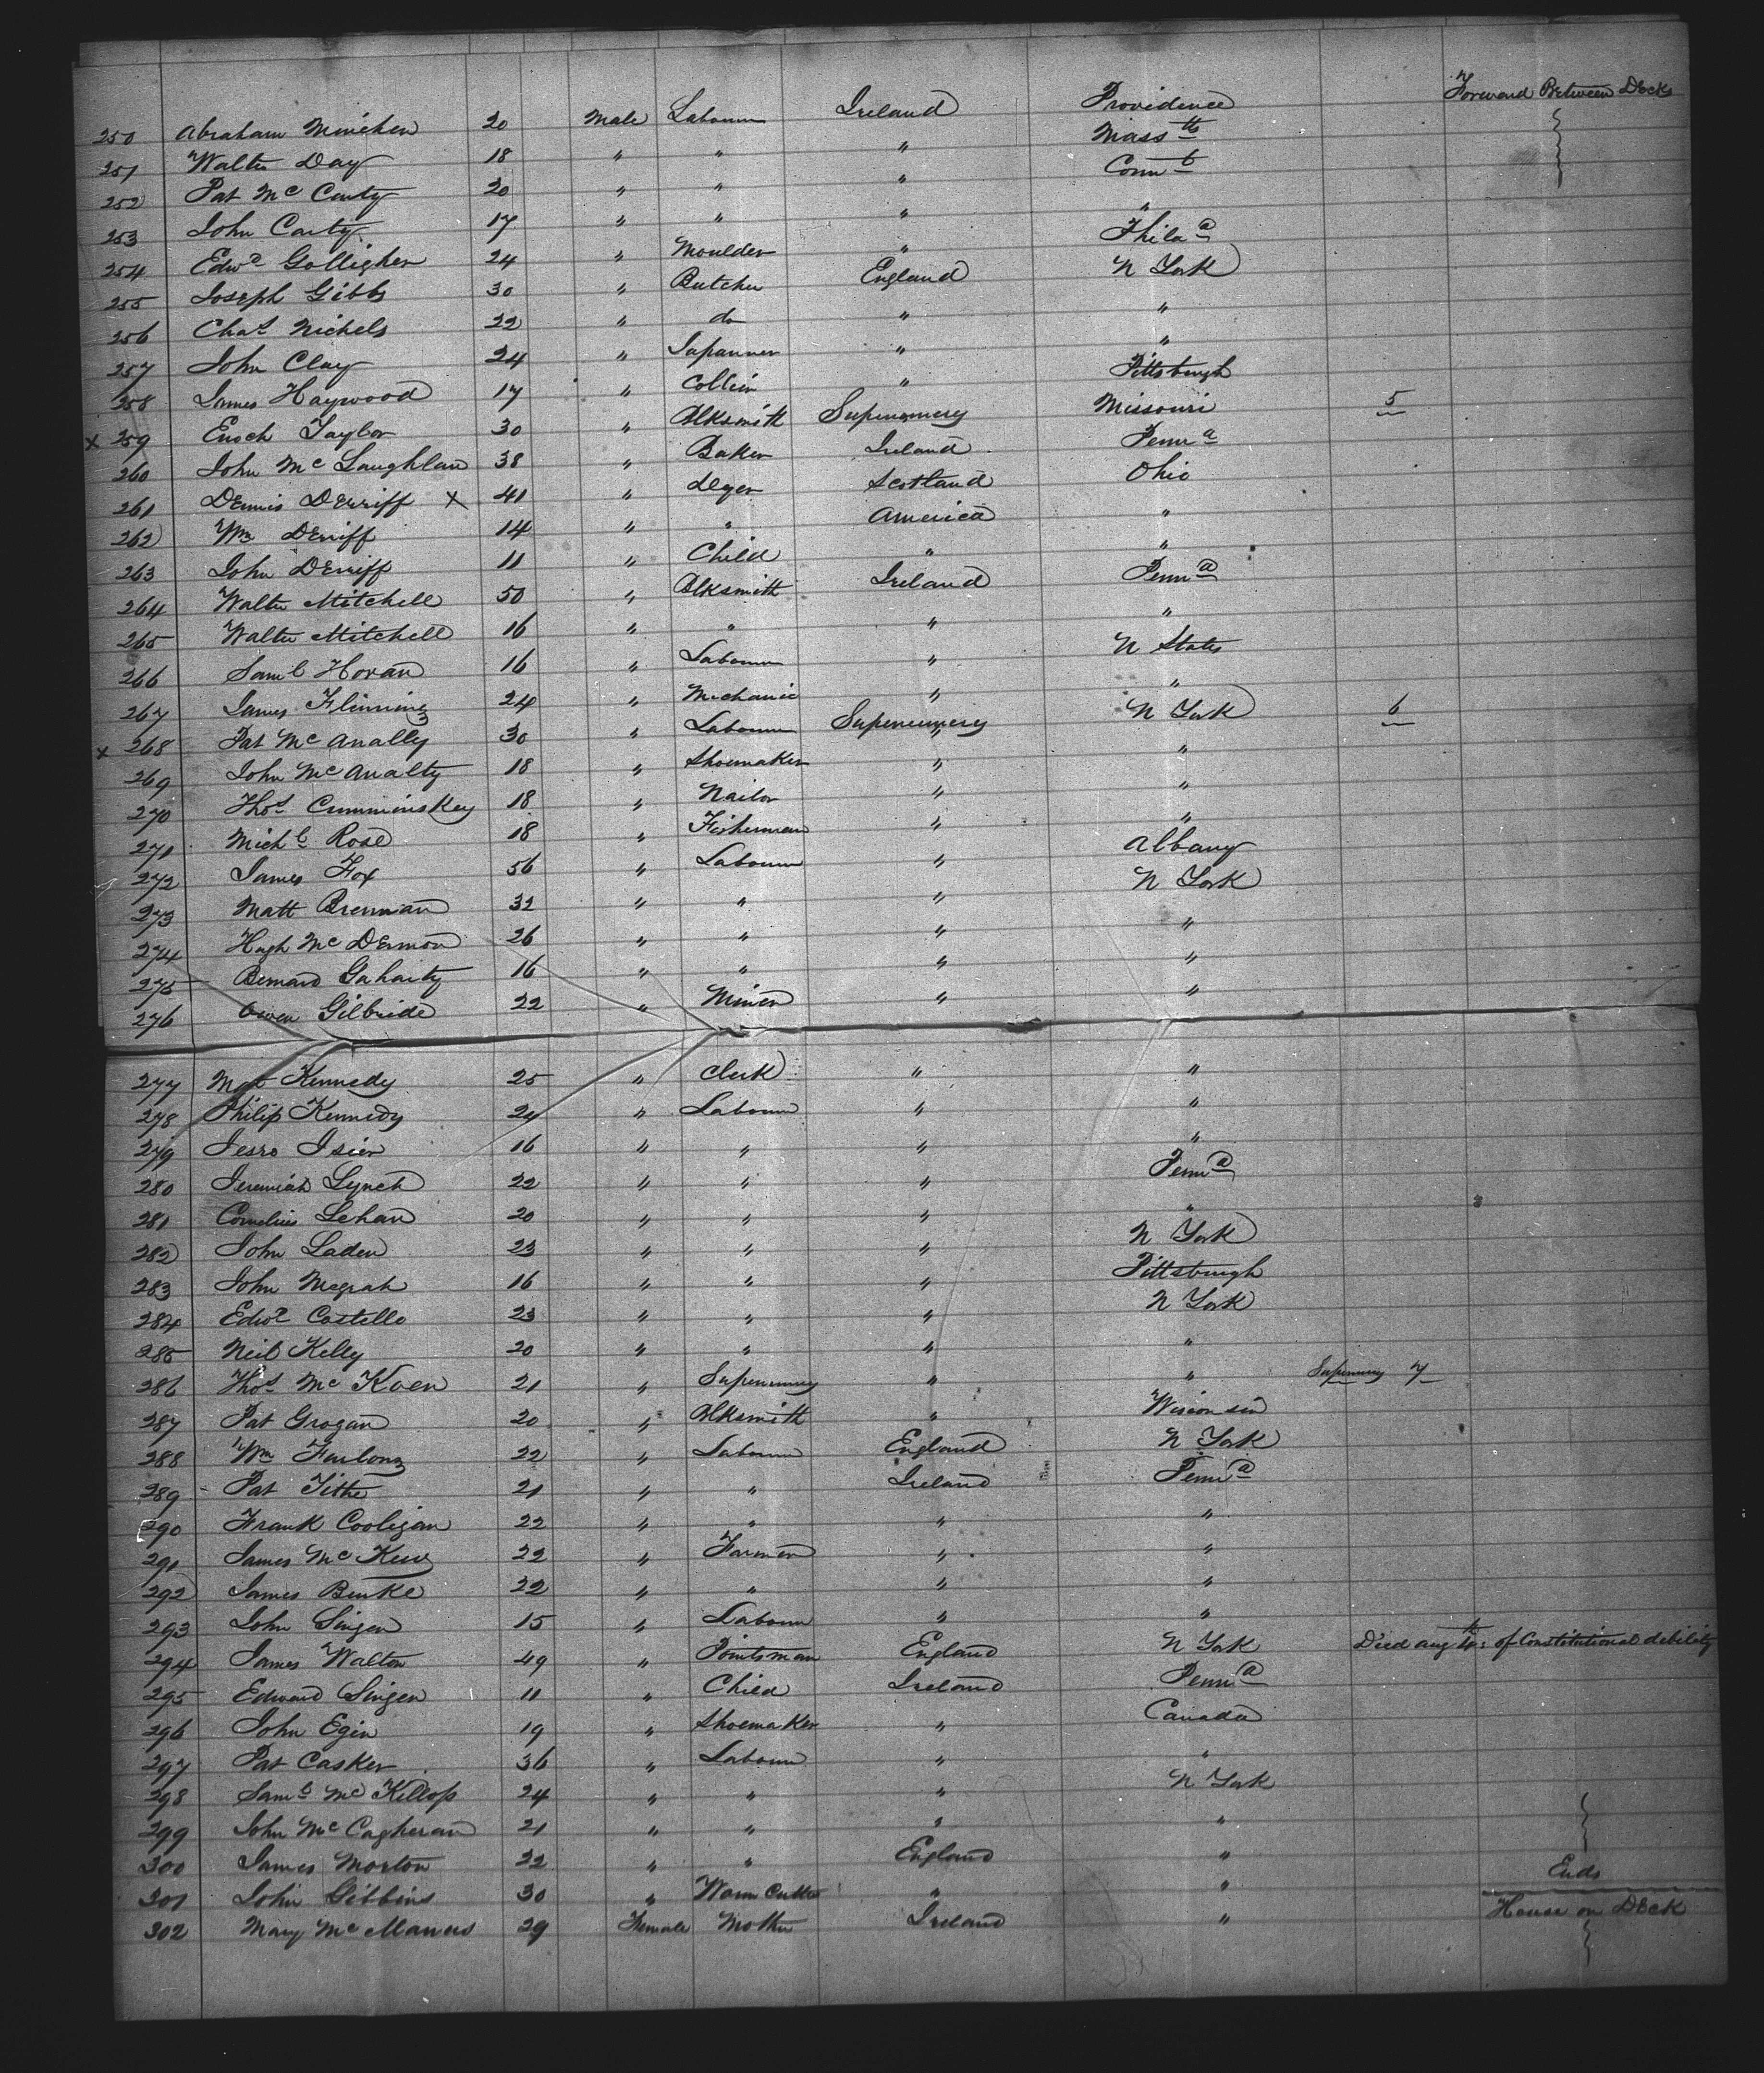 Forward Between Decks
250 Abraham Minichen 20 Male Labourer Ireland Providence
251 Walter Day 18 " " " Mass th
252 Pat McCarty 20 " " " Conn t
253 John Carty 17 " " " "
254 Edwd Golligher 24 " Moulder " Phila a
255 Joseph Gibbs 30 " Butcher England N York
256 Chas Nichels 22 " do " "
257 John Clay 24 " Japanner " "
258 James Haywood 17 " Collier " Pittsburgh
x 259 Enoch Taylor 30 " Blksmith Supernumery Missouri 5
260 John McLaughlan 38 " Baker Ireland Penn a
261 Dennis Derriff x 41 " Dyer Scotland Ohio
262 Wm Derriff 14 " " America "
263 John Derriff 11 " Child " "
264 Walter Mitchell 50 " Blksmith Ireland Penn a
265 Walter Mitchell 16 " " " "
266 Saml Horan 16 " Labourer " N States
267 James Flinning 24 " Mechanic " "
x 268 Pat McAnally 30 " Labourer Supernumery " N York 6
269 John McAnalty 18 " Shoemaker " "
270 Thos Cumminskey 18 " Nailor " "
271 Michl Rose 18 " Fisherman " "
272 James Fox 56 " Labourer " Albany
273 Matt Brennan 32 " " " N York
274 Hugh McDermon 26 " " " "
275 Bernard Gaharty 16 " " " "
276 Owen Gilbride 22 " Miner " "
277 Kennedy 25 " Clerk " "
278 Philip Kennedy " Labourer " "
279 16 " " " "
280 Jeremiah Lynch 22 " " " Penn a
281 Cornelius Lehan 20 " " " "
282 John Laden 23 " " " N York
283 John Megrah 16 " " " Pittsburgh
284 Edwd Costello 23 " " " N York
285 Neil Kelly 20 " " " "
286 Thos McKoen 21 " Supernumery " " Supernumery 7
287 Pat Grogan 20 " Blksmith " Wisconsin
288 Wm Furlong 22 " Labourer England N York
289 Pat Tithe 21 " " Ireland Penn a
290 Frank Cooligan 22 " " " "
291 James McKew 22 " Farmer " "
292 James Burke 22 " " " "
293 John Singen 15 " Labourer " "
294 James Walton 49 " Pointsman England N York Died Aug 4th: of Constitutional debility
295 Edward Singen 11 " Child Ireland Penn a
296 John Egin 19 " Shoemaker " Canada
297 Pat Casker 36 " Labourer " "
298 Saml McKillop 24 " " " N York
299 John McCagheran 21 " " " "
300 James Morton 22 " " England "
Ends
301 John Gibbins 30 " Cutter " "
House on Deck
302 Mary McManus 29 Female Mother Ireland "